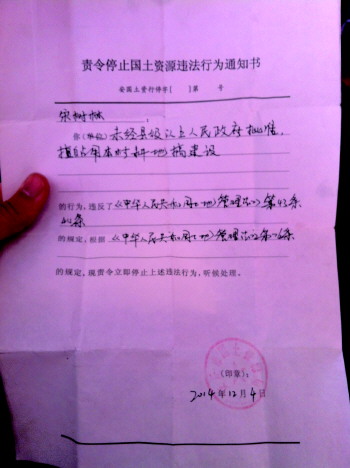 责令停止国土资源违法行为通知书
安国土资行停字[ ]第 号
宋树林
你(单位)未经县级以上人民政府批准,
擅自用本村耕地搞建设
的行为,违反了《中华人民共和国土地管理法》第43条
44条
的规定。根据《中华人民共和国土地管理法》第76条
的规定,现责令立即停止上述违法行为,听候处理。
(印章):
2014年12月4日